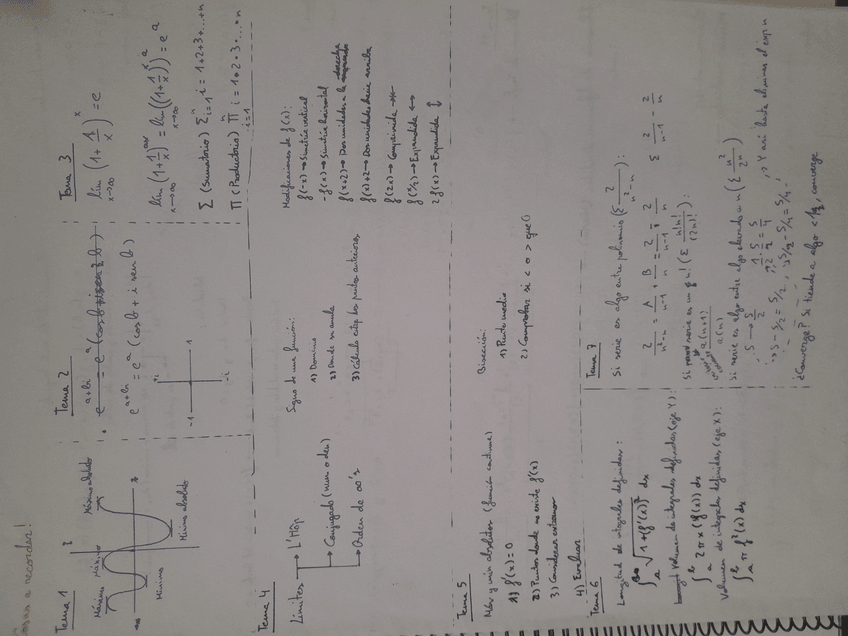 a recordar!
Tema 1
Máximo
Máximo
Máximo absoluto
Mínimo
Mínimo absoluto
Tema 2
e^{a+bi} = e^a (cos b + i sen b)
e^{a+bi} = e^a (cos b + i sen b)
i
-1
1
-i
Tema 3
lim x→∞ (1 + 1/x)^x = e
lim x→∞ (1 + 1/x)^{ax} = lim x→∞ ((1 + 1/x)^x)^a = e^a
∑ (Sumatorio) ∑_{i=1}^n i = 1+2+3+...+n
∏ (Productorio) ∏_{i=1}^n i = 1·2·3·...·n
Tema 4
Límites → L'Hôp
→ Conjugado (num o den)
→ Orden de ∞'s
Signo de una función:
1) Dominio
2) Donde se anula
3) Cálculo entre los puntos anteriores
Modificaciones de f(x):
f(-x) → Simetría vertical
-f(x) → Simetría horizontal
f(x+2) → Dos unidades a la izquierda
f(x)+2 → Dos unidades hacia arriba
f(2x) → Comprimida
f(x/2) → Expandida ↔
2f(x) → Expandida ↕
Tema 5
Máx y mín absolutos (función continua)
1) f'(x) = 0
2) Puntos donde no existe f'(x)
3) Considerar extremos
4) Evaluar
Bisección:
1) Punto medio
2) Comprobar si < o > que 0
Tema 6
Longitud de integrales definidas:
∫_a^b √(1+(f'(x))² dx
Volumen de integrales definidas (eje Y):
∫_a^b 2πx (f(x)) dx
Volumen de integrales definidas (eje X):
∫_a^b π f²(x) dx
Tema 7
Si serie es algo entre polinomio (∑ 2/(n²-n)):
2/(n²-n) = A/(n-1) + B/n = 2/(n-1) - 2/n
∑ 2/(n-1) - 2/n
Si serie es un n! (∑ n!n!/(2n)!):
a(n+1)/a(n)
Si serie es algo elevado a n (∑ n/2^n)
S → S/2
S - S/2 = S/2
Y así hasta eliminar el exp n
¿Converge? Si tiende a algo < 1/2, converge